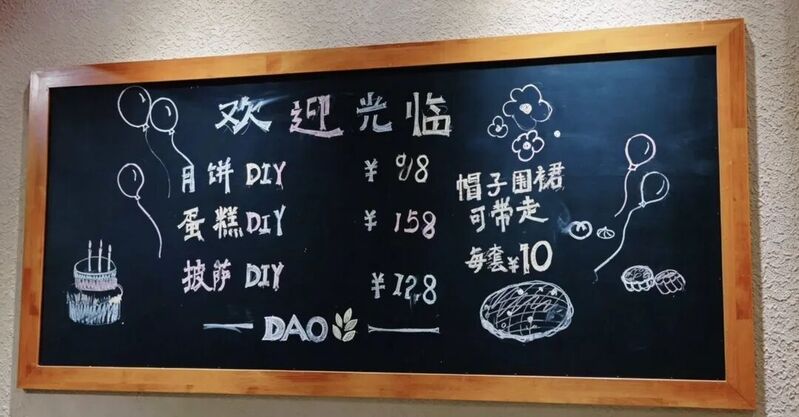 欢迎光临
月饼 DIY ¥ 98
蛋糕 DIY ¥ 158
披萨 DIY ¥ 128
帽子围裙
可带走
每套¥10
DAO